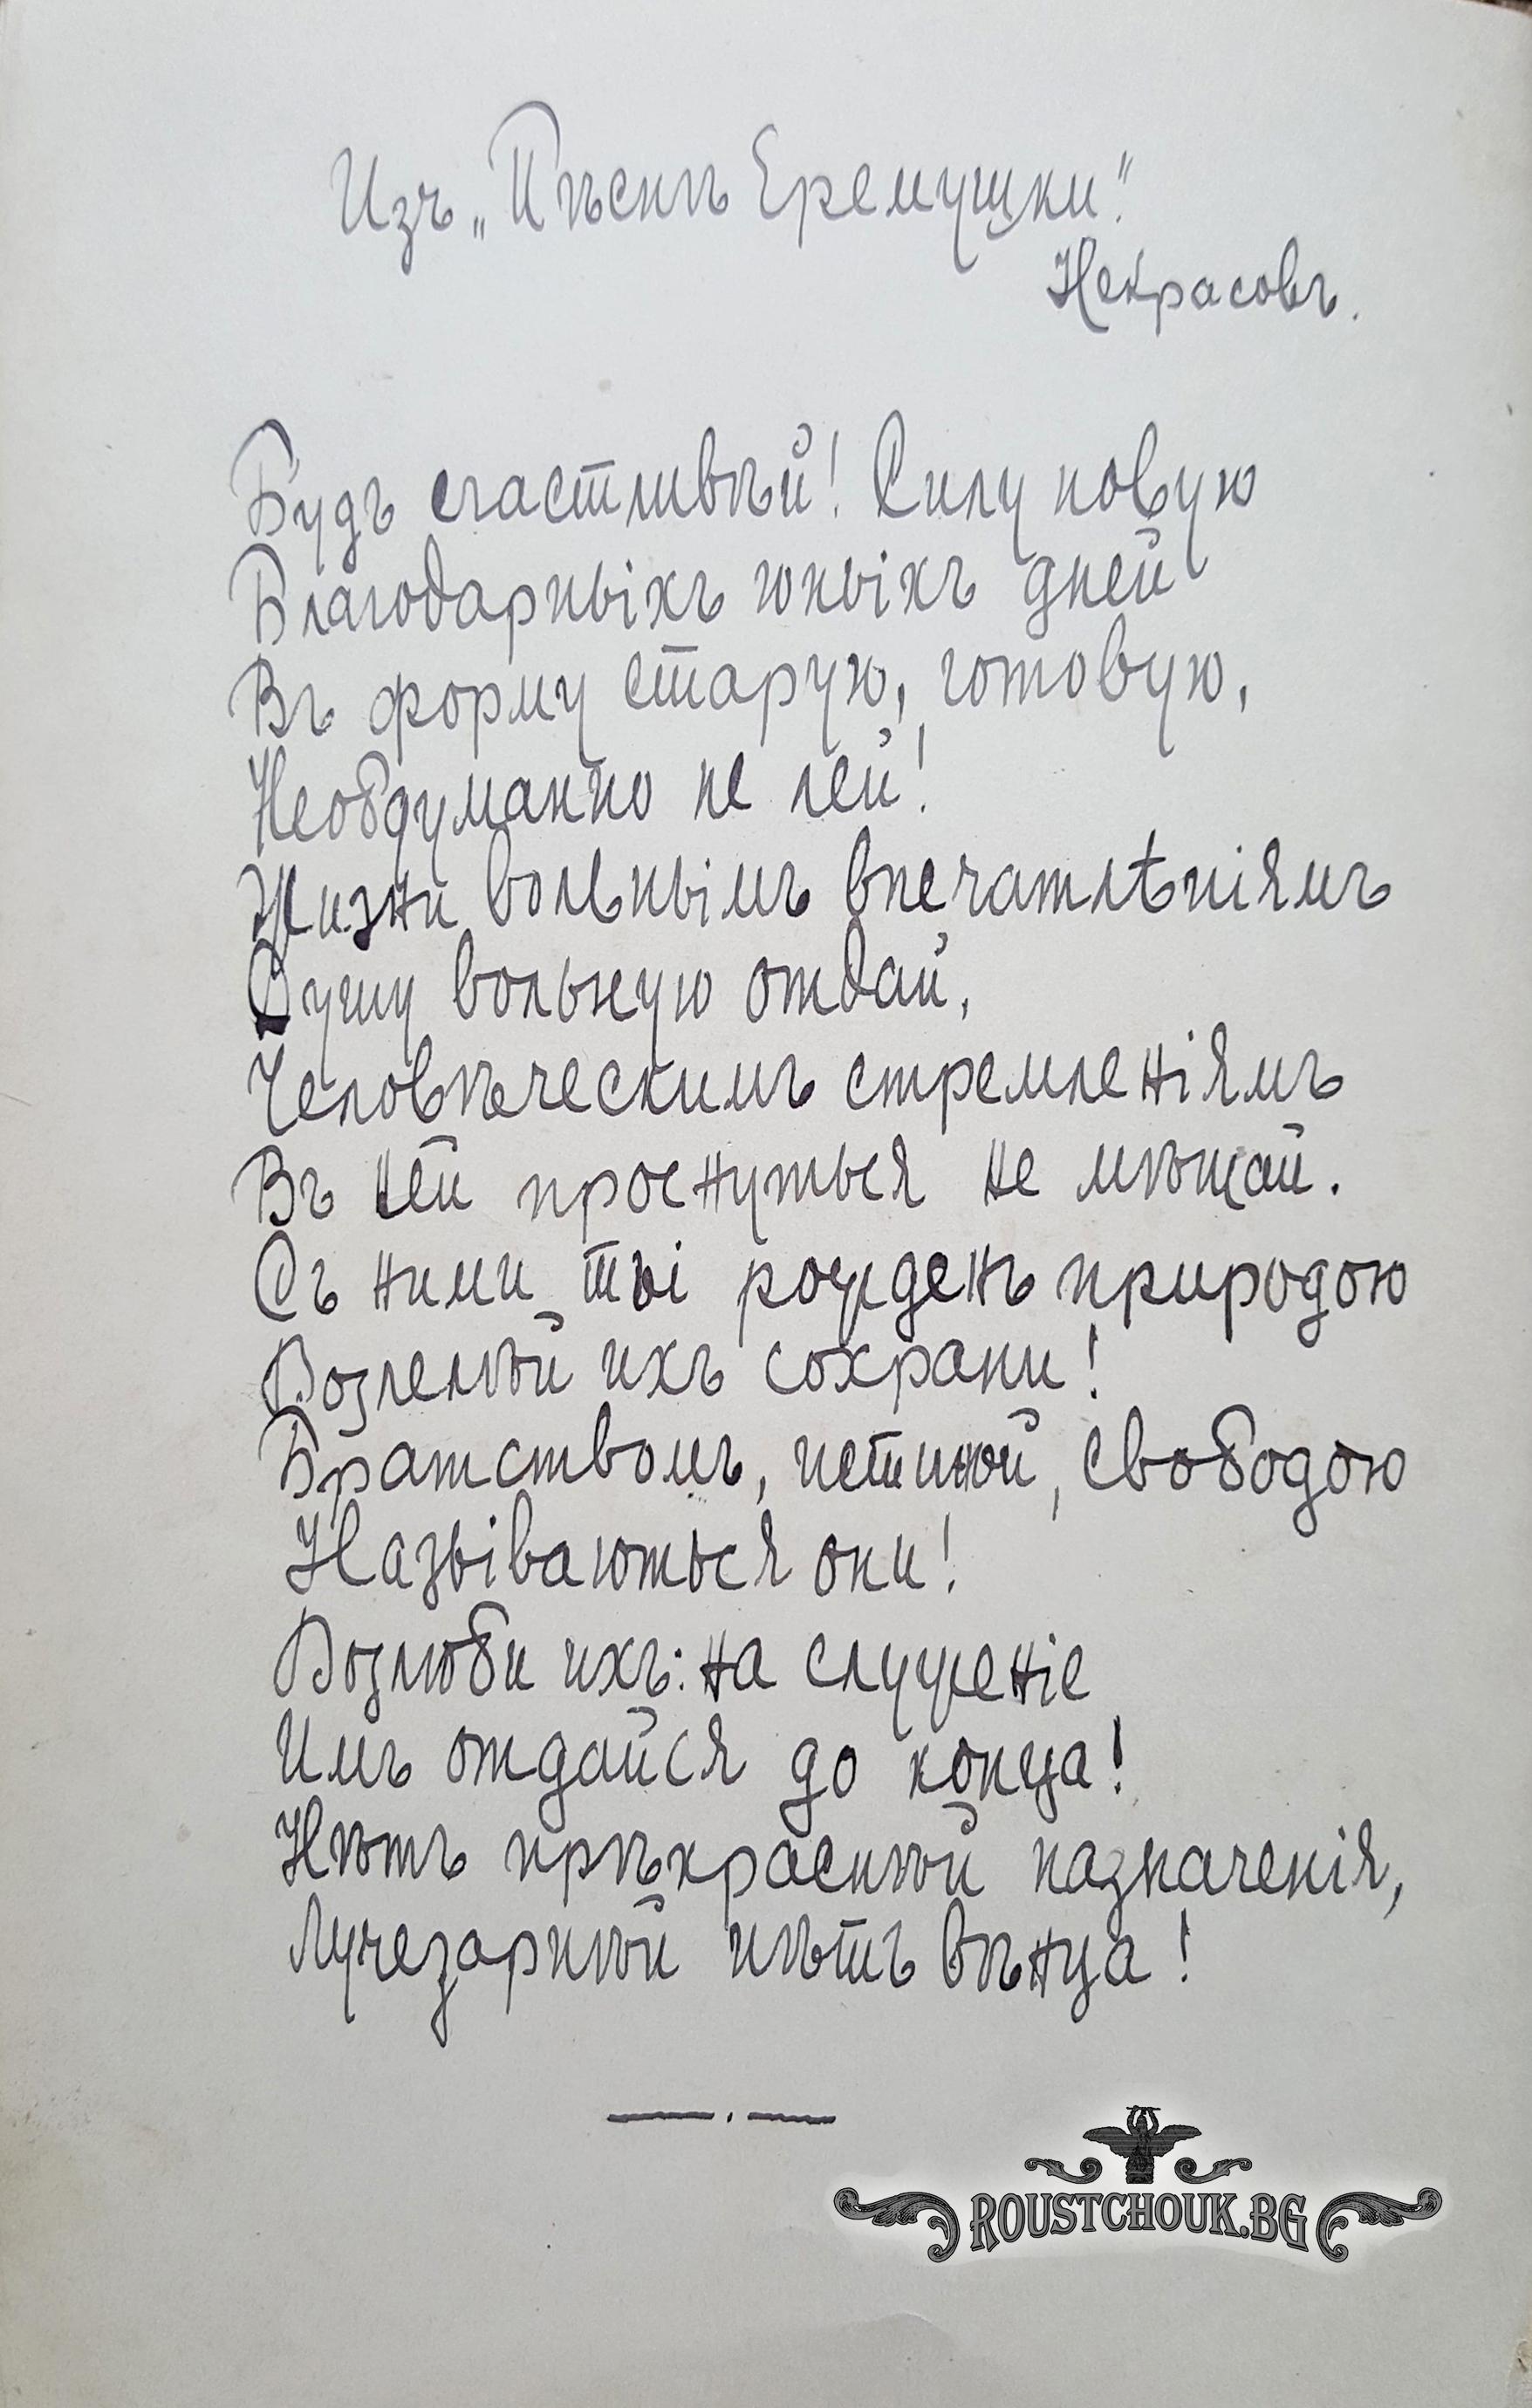 Изъ „Пѣснѣ Еремушки"
Некрасовъ.
Будъ счастливѣй! Силу новую
Благодарныхъ юныхъ дней
Въ форму старую, готовую,
Необдуманно не лей!
Жизни вольнымъ впечатлѣніямъ
Душу вольную отдай,
Человѣческимъ стремленіямъ
Въ ней проснуться не мѣшай.
Съ ними ты рожденъ природою
Возлелѣй ихъ сохрани!
Братствомъ, истиной, свободою
Называються они!
Возлюби ихъ: на служеніе
Имъ отдайся до конца!
Нѣтъ прѣкраснѣй назначенія,
Лучезарнѣй нѣтъ вѣнца!
ROUSTCHOUK.BG